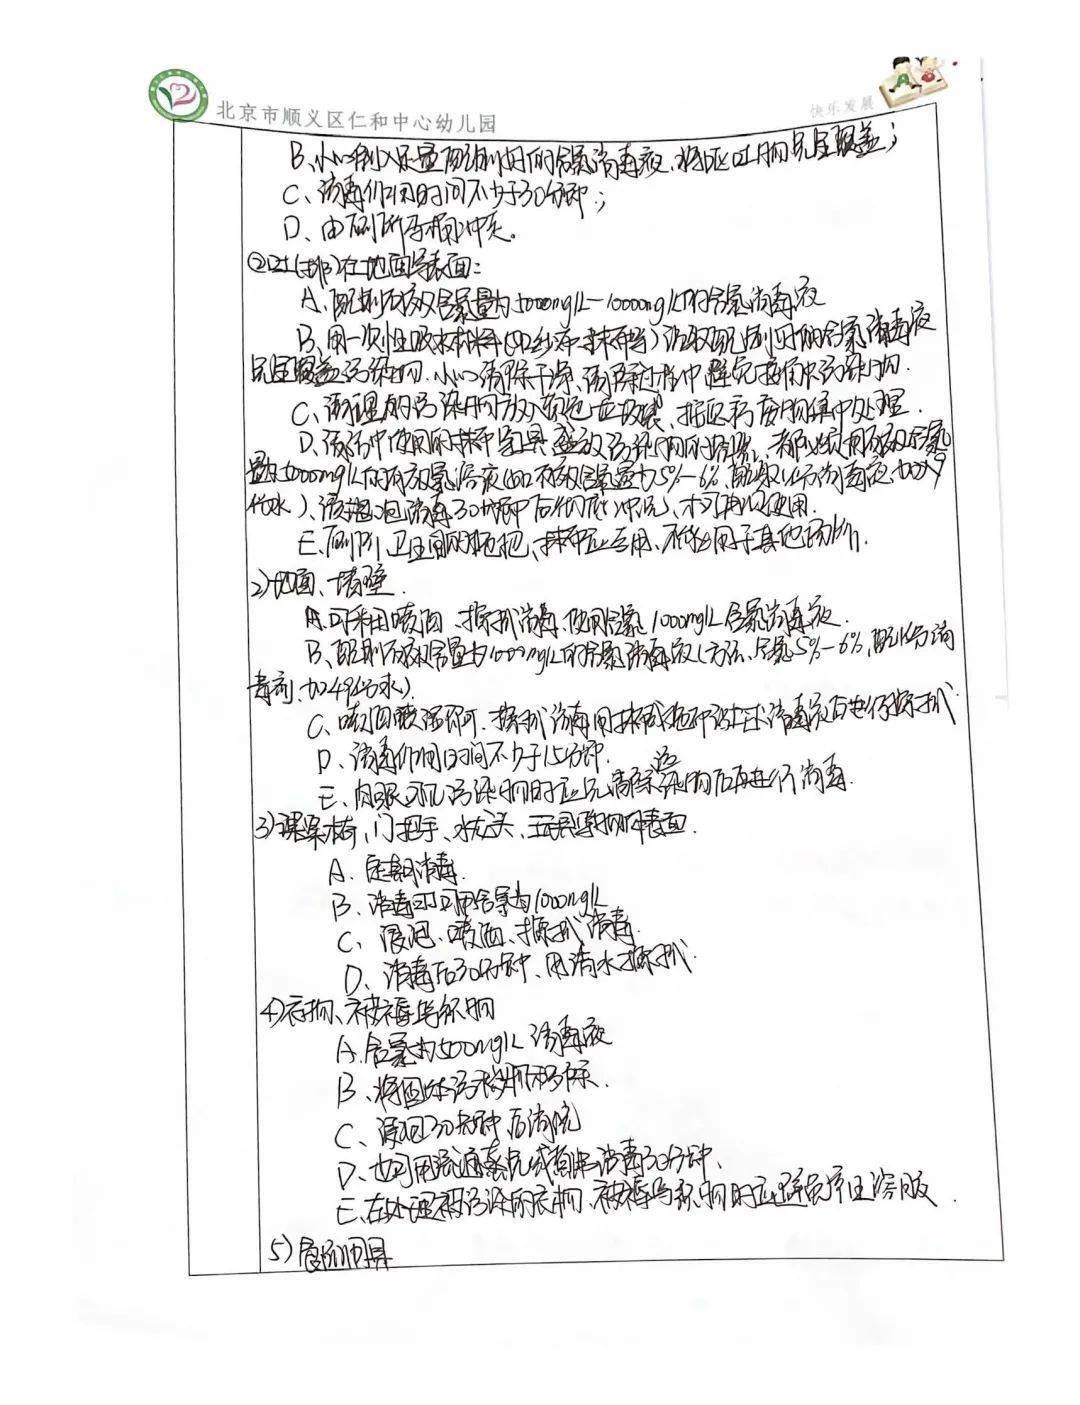 北京市顺义区仁和中心幼儿园
快乐发展
B、小心倒入足量配制好的含氯消毒液,将呕吐物完全覆盖;
C、消毒作用时间不少于30分钟;
D、由厕所孕桶冲走。
②吐(排)在地面等表面:
A、配制有效含氯量为5000mg/L-10000mg/L的含氯消毒液
B、用一次性吸水材料(如纱布、抹布等)沾取配制好的含氯消毒液
完全覆盖污染物,小心清除干净,清除过程中避免接触污染物.
C、清理的污染物放入黄色垃圾袋、按医疗废物集中处理.
D、清洁中使用的抹布等工具、盛放污染物的容器、都必须用有效含氯
量为5000mg/L的有效氯溶液(如有效含氯量为5%-6%,配取1份消毒液,加9
份水)、浸泡消毒30分钟后彻底冲洗、才可再次使用.
E、厕所、卫生间的拖把、抹布应专用、不能用于其他场所.
2)地面、墙壁.
A、可采用喷洒、擦拭消毒,使用含氯1000mg/L含氯消毒液.
B、配制有效含量为1000mg/L的含氯消毒液(方法、含氯5%-6%,配1份消
毒剂、加49份水).
C、喷洒喷湿即可.擦拭消毒用抹布或拖布沾消毒液后进行擦拭.
D、消毒作用时间不少于15分钟.
E、肉眼可见污染物时应先清除污染物后再进行消毒.
3)课桌椅、门把手、水龙头、玩具等物体表面.
A、定期消毒.
B、消毒时可用含氯为1000mg/L
C、浸泡、喷洒、擦拭消毒.
D、消毒后30分钟、用清水擦拭.
4)衣物、被褥等织物
A、含氯为500mg/L消毒液
B、将固体污秽物移除.
C、浸泡30分钟后清洗
D、也可用流通蒸汽或煮沸消毒30分钟、
E、在处理被污染的衣物、被褥等织物时应避免产生溶胶.
5)食饮用具